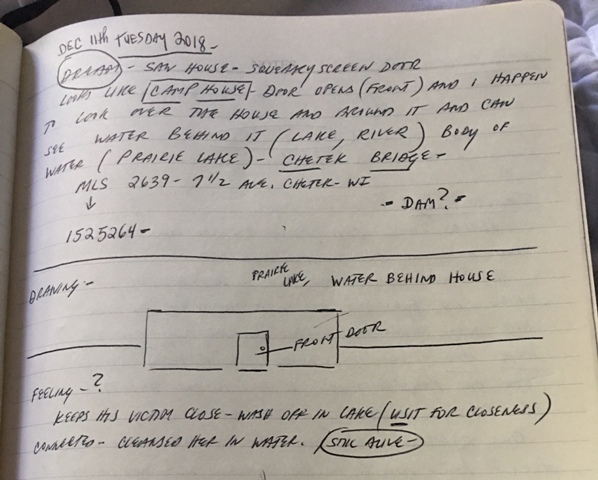 DEC 11th TUESDAY 2018-
DREAM - SAW HOUSE - SQUEAKY SCREEN DOOR
LOOKS LIKE CAMP HOUSE - DOOR OPENS (FRONT) AND I HAPPEN
TO LOOK OVER THE HOUSE AND AROUND IT AND CAN
SEE WATER BEHIND IT (LAKE, RIVER) BODY OF
WATER (PRAIRIE LAKE) - CHETEK BRIDGE -
MLS 2639 - 7 1/2 AVE. CHETEK - WI
- DAM? -
1525264 -
DRAWING - PRAIRIE LAKE, WATER BEHIND HOUSE
FRONT DOOR
FEELING - ?
KEEPS HIS VICTIM CLOSE - WASH OFF IN LAKE (VISIT FOR CLOSENESS)
CONNECTED - CLEANSED HER IN WATER. STILL ALIVE -